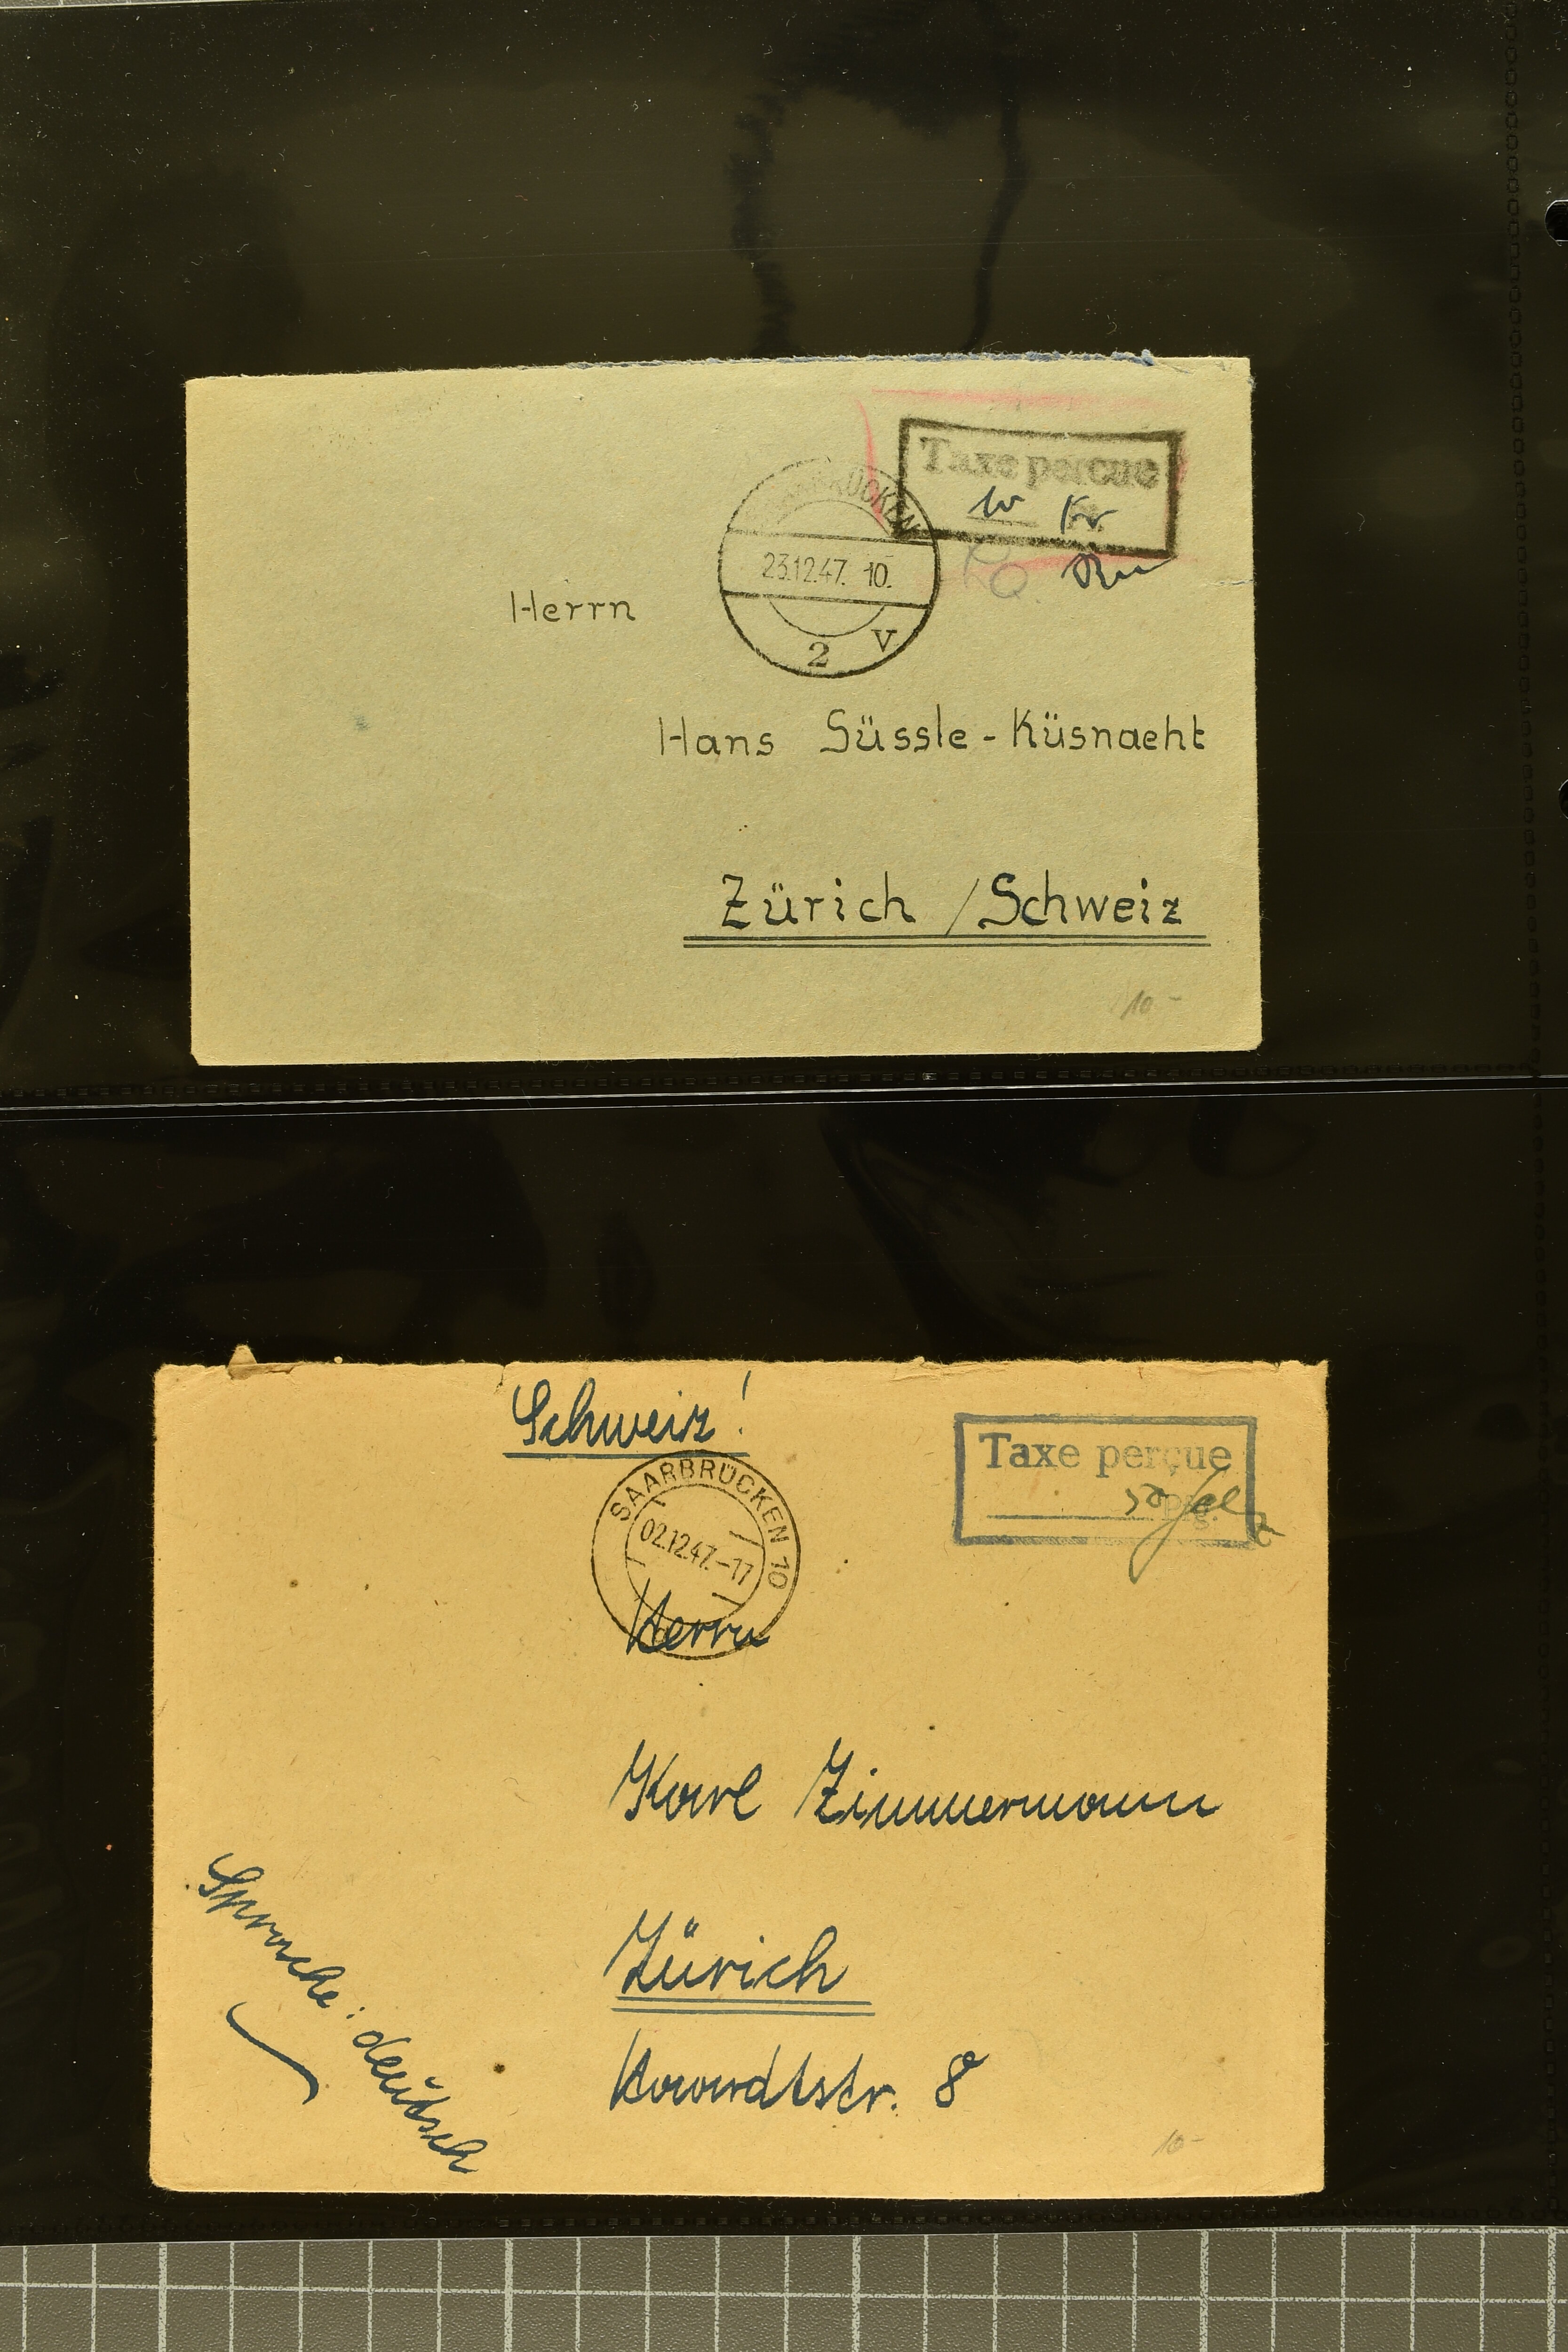 Taxe percue
SAARBRÜCKEN
23.12.47. 10.
2 V
Herrn
Hans Süssle-Küsnacht
Zürich / Schweiz
10-
Schweiz!
Taxe perçue
Pfg.
SAARBRÜCKEN 10
02.12.47.-17
Herrn
Karl Zimmermann
Zürich
Sprache: deutsch
10-